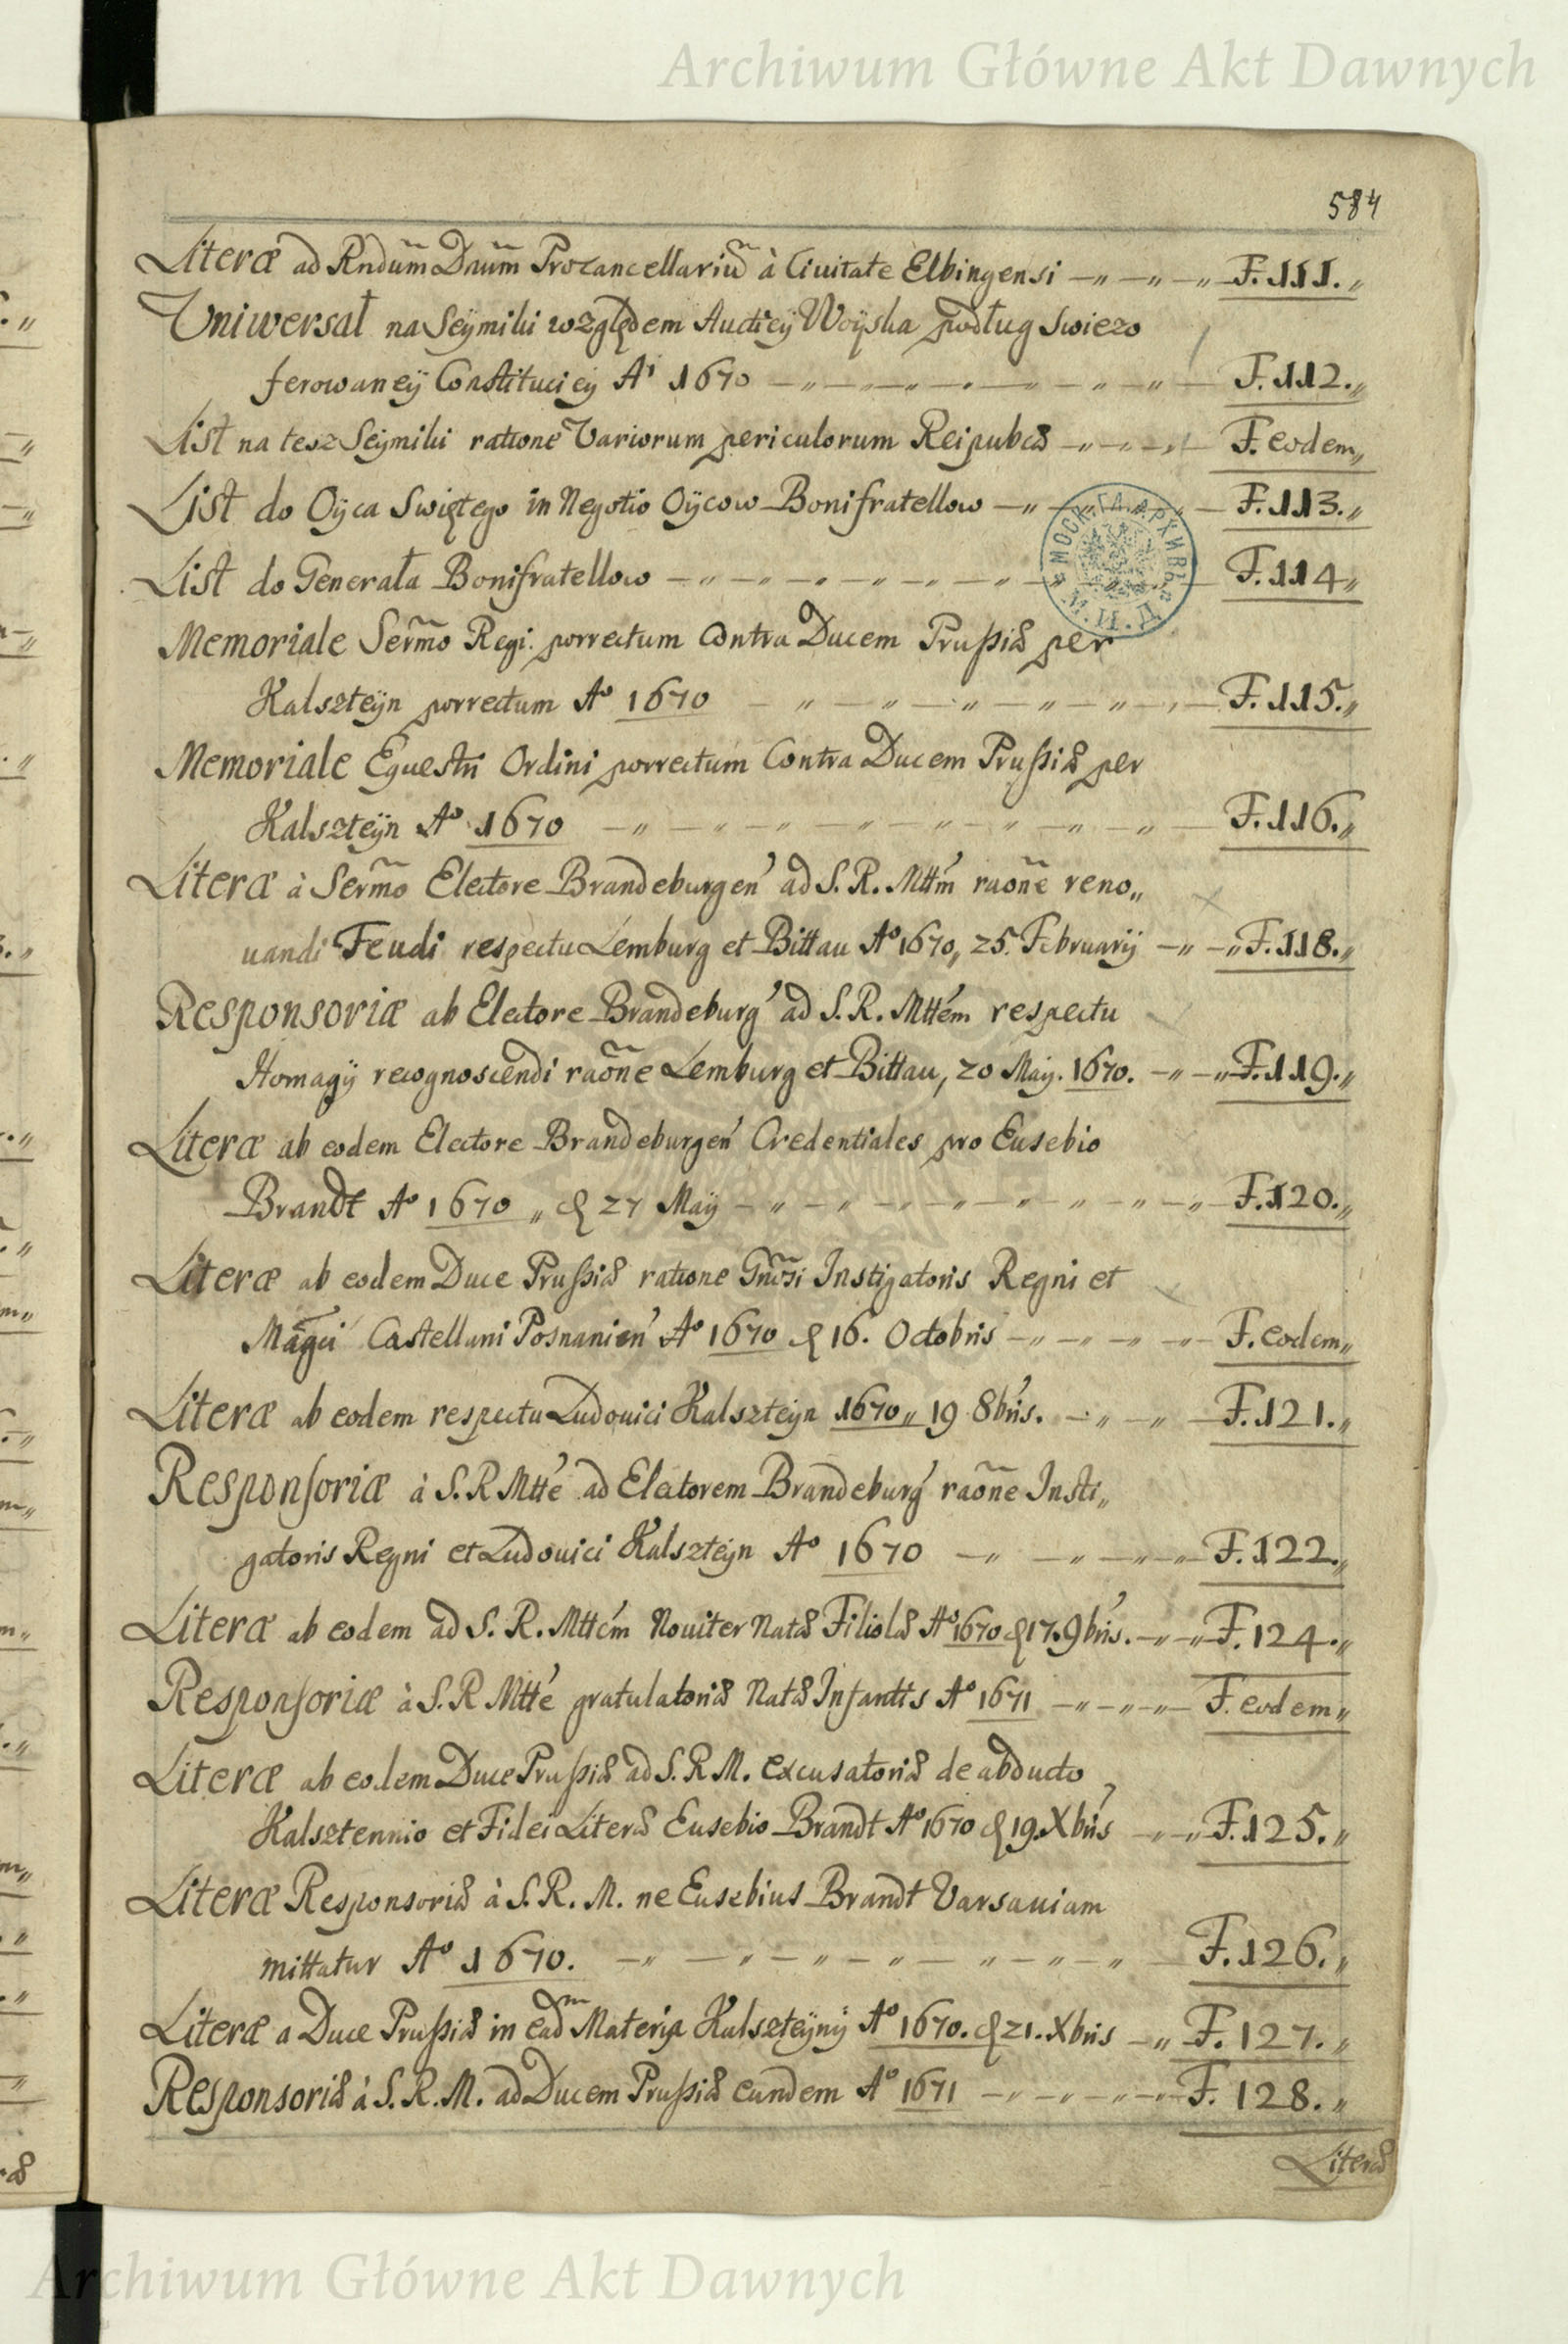 Archiwum Główne Akt Dawnych
584
Literæ ad Rndum Dnum Procancellariu à Ciuitate Elbingensi F. 111.
Uniwersał na Seÿmiki względem Auctieÿ Woÿska podług Swiezo
ferowaneÿ Constitucieÿ A° 1670 F. 112.
List na tesz Seÿmiki ratione Variorum periculorum Reipubcæ F. eodem
List do Oÿca Swiętego in Negotio Oÿcow Bonifratellow F. 113.
List do Generała Bonifratellow F. 114
Memoriale Sermo Regi porrectum Contra Ducem Prussiæ per
Kalszteÿn porrectum A° 1670 F. 115.
Memoriale Equestri Ordini porrectum Contra Ducem Prussiæ per
Kalszteÿn A° 1670 F. 116.
Literæ à Sermo Electore Brandeburgen' ad S. R. Mttm raōne reno„
uandi Feudi respectu Lemburg et Bittau A° 1670, 25. Februarÿ F. 118.
Responsoriæ ab Electore Brandeburg' ad S. R. Mttem respectu
Homagÿ recognoscendi raōne Lemburg et Bittau, 20 May. 1670. F. 119.
Literæ ab eodem Electore Brandeburgen' Credentiales pro Eusebio
Brandt A° 1670 „ 27 Maÿ F. 120.
Literæ ab eodem Duce Prussiæ ratione Instigatoris Regni et
Castellani Posnanien' A° 1670 16. Octobris F. eodem
Literæ ab eodem respectu Ludouici Kalszteÿn 1670 „ 19 8bris. F. 121.
Responsoriæ à S. R Mtte ad Electorem Brandeburg' raōne Insti„
gatoris Regni et Ludouici Kalszteÿn A° 1670 F. 122.
Literæ ab eodem ad S. R. Mttem Nouiter Natæ Filiolæ A° 1670 17. 9bris. F. 124.
Responsoriæ à S. R Mtte gratulatoriæ Natæ Infantis A° 1671 F. eodem
Literæ ab eodem Duce Prussiæ ad S. R M. excusatoriæ de abducto
Kalsztennio et Fidei Literæ Eusebio Brandt A° 1670 19. Xbris F. 125.
Literæ Responsoriæ à S. R. M. ne Eusebius Brandt Varsauiam
mittatur A° 1670. F. 126.
Literæ a Duce Prussiæ in eadm Materia Kalszteÿnÿ A° 1670. 21. Xbris F. 127.
Responsoriæ à S. R. M. ad Ducem Prussiæ eundem A° 1671 F. 128.
Literæ
Archiwum Główne Akt Dawnych